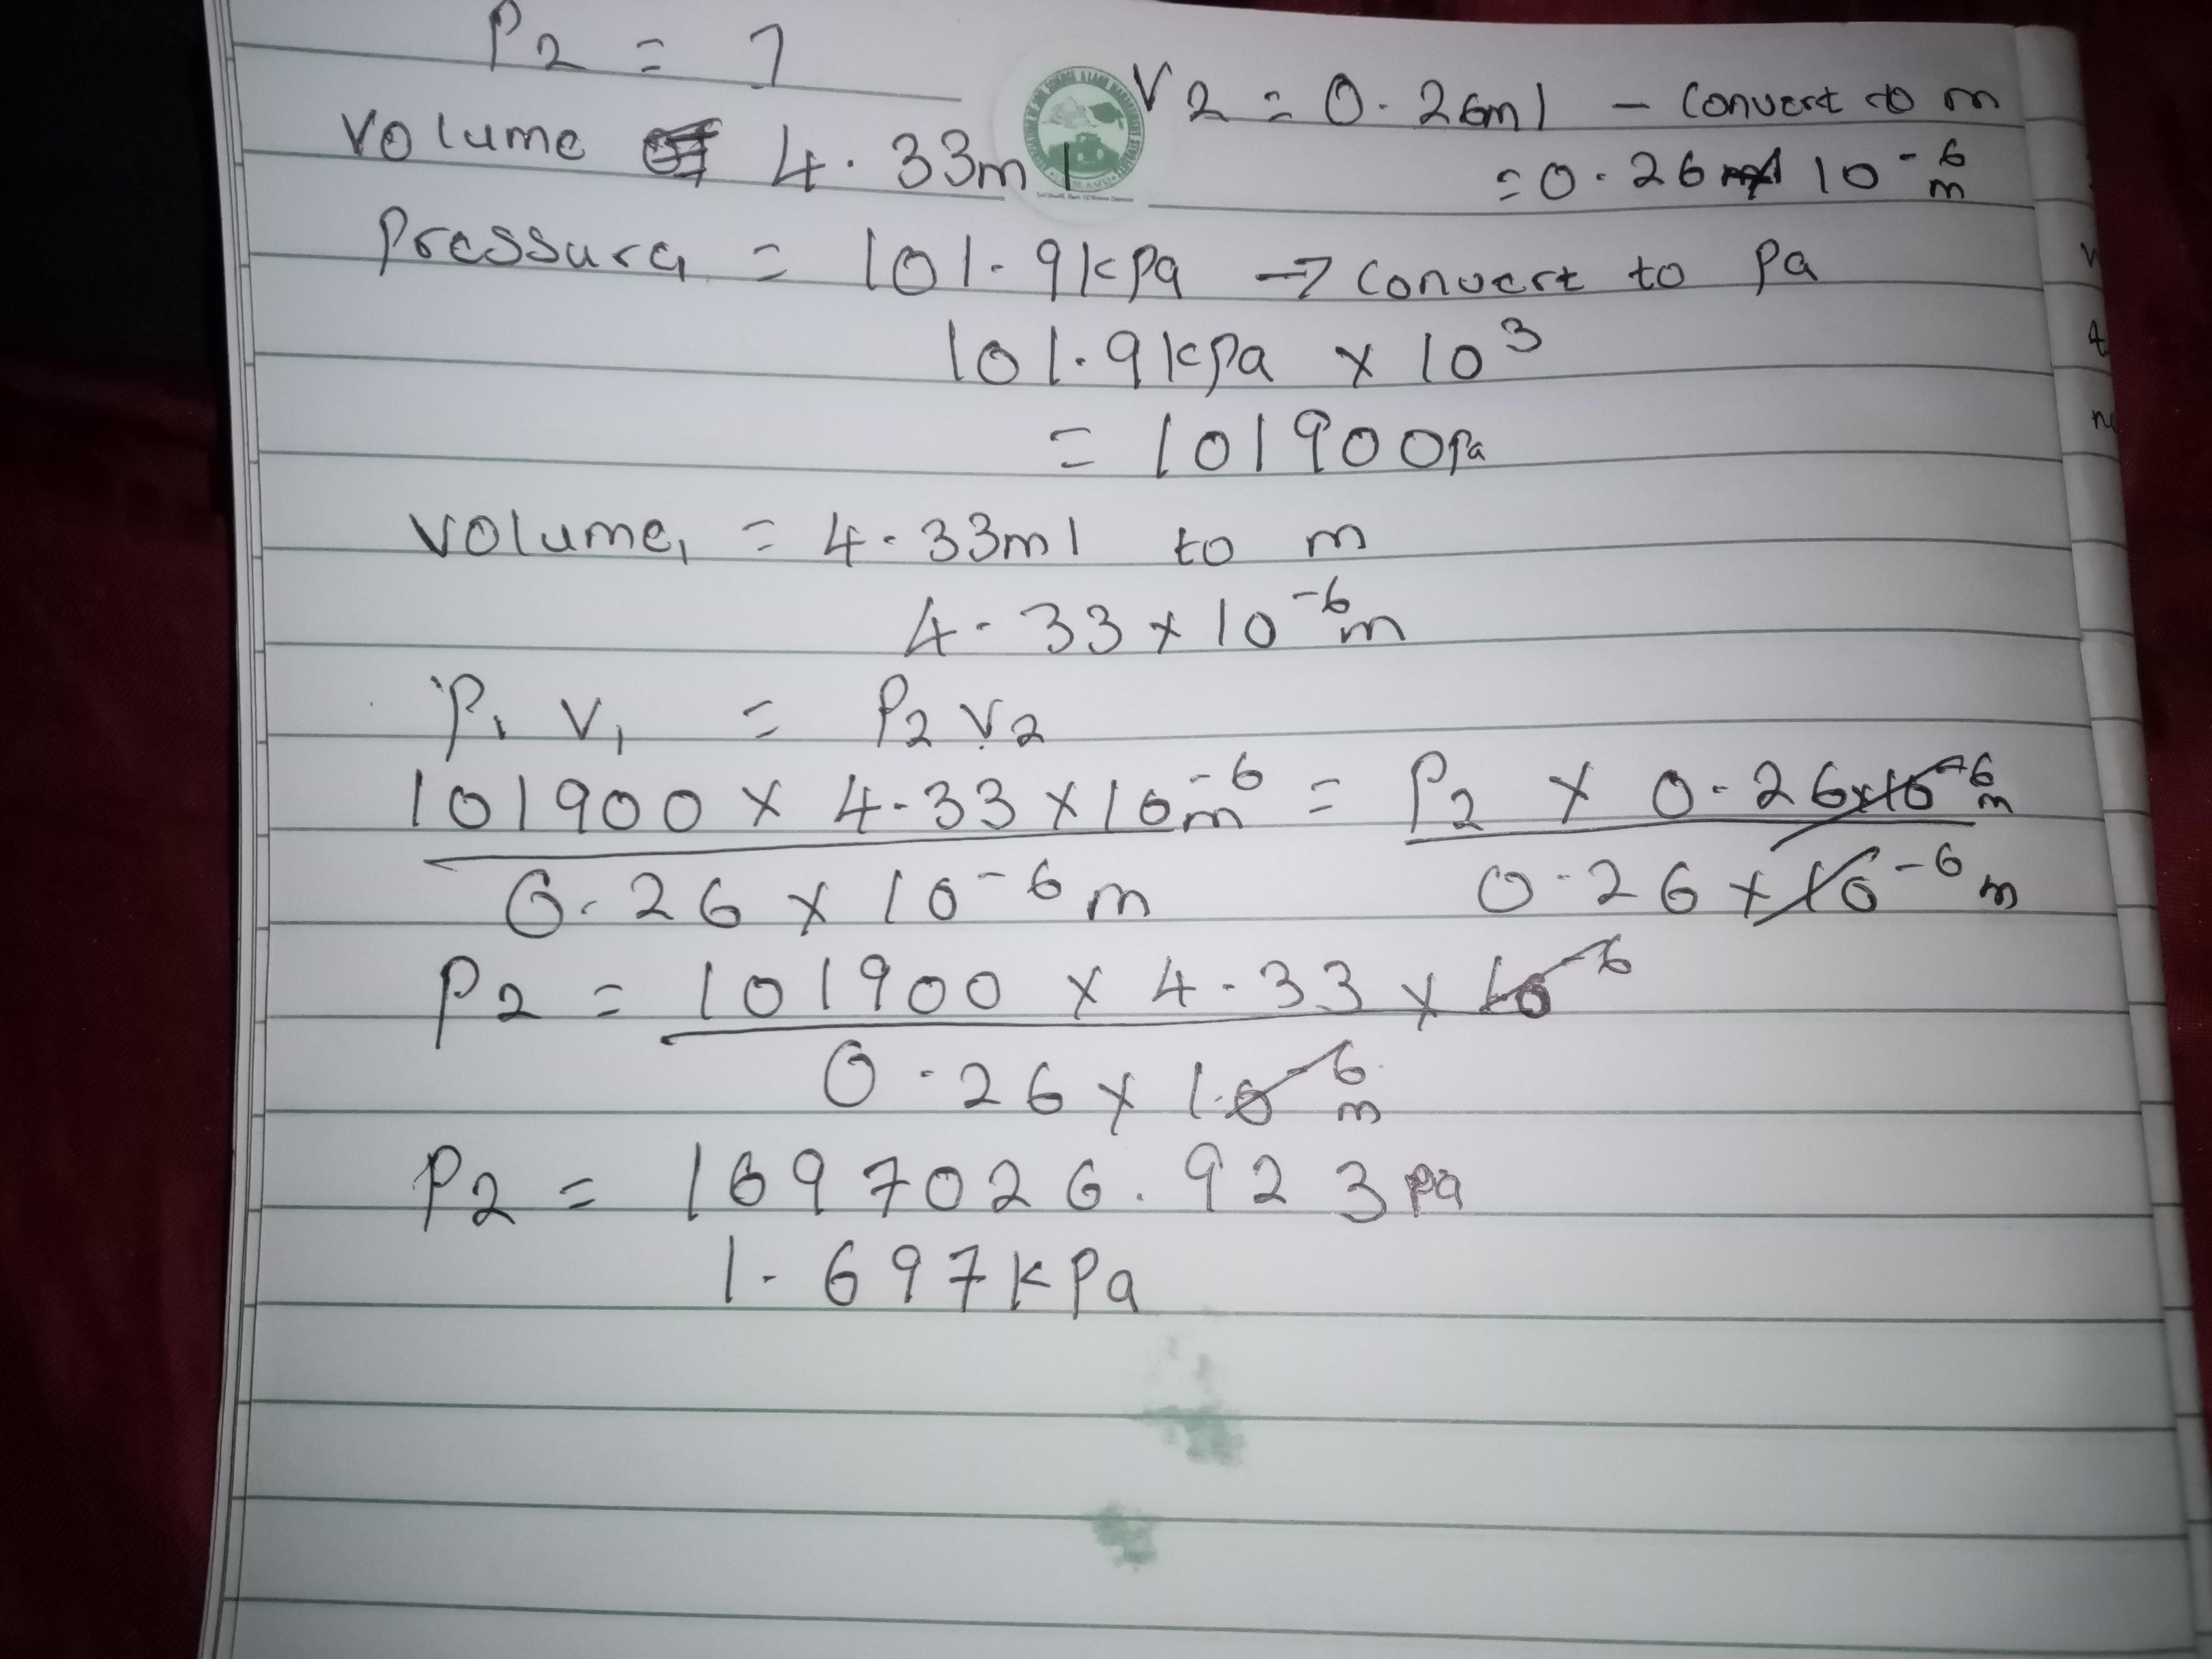 P2 = ?
V2 = 0.26ml - Convert to m
= 0.26 x 10⁻⁶ m
Volume 4.33ml
Pressure, = 101.9kpa → Convert to Pa
101.9kpa x 10³
= 101900pa
Volume, = 4.33ml to m
4.33 x 10⁻⁶m
P₁ V₁ = P2 V2
101900 x 4.33 x 10⁻⁶m = P2 x 0.26x10⁻⁶m
0.26 x 10⁻⁶ m 0.26 x 10⁻⁶ m
P2 = 101900 x 4.33 x 10⁻⁶
0.26 x 10⁻⁶ m
P2 = 1697026.923pa
1.697kPa